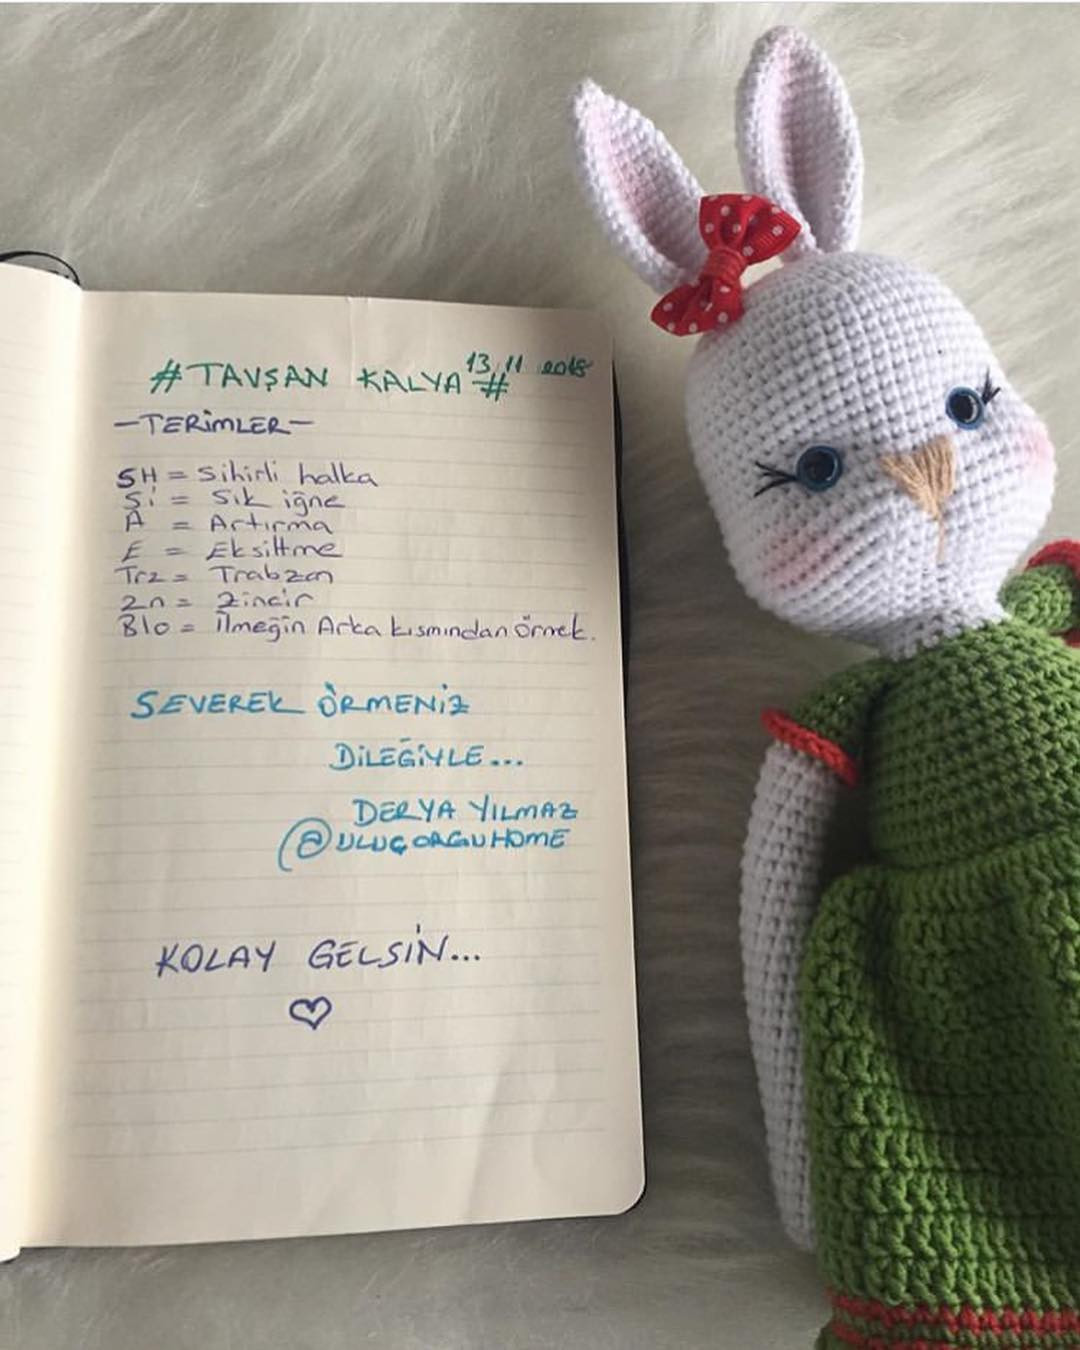 #TAVŞAN KALYA# 13.11.2018
-TERİMLER-
SH = Sihirli halka
Si = Sık iğne
A = Artırma
E = Eksiltme
Trz = Trabzan
Zn = Zincir
Blo = İlmeğin Arka kısmından örnek.
SEVEREK ÖRMENİZ
DİLEĞİYLE...
DERYA YILMAZ
@ULUÇORGUHOME
KOLAY GELSİN...